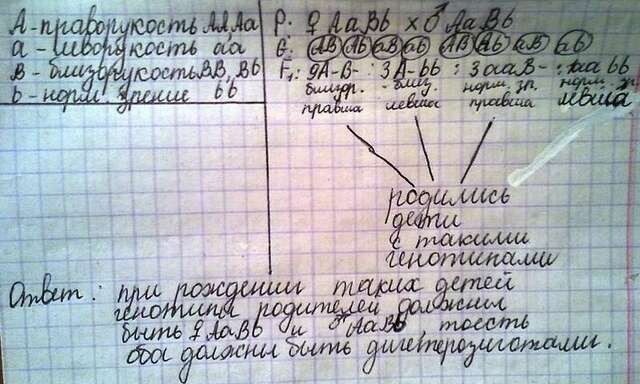 А - праворукость АА, Аа
а - леворукость аа
В - близорукость ВВ, Вb
b - норм. зрение bb
P: ♀ АаВb × ♂ АаВb
G: АВ Аb аВ аb АВ Аb аВ аb
F₁: 9А-В- : 3А-bb : 3ааВ- : 1ааbb
близор. - близ. норм. зр. норм. зр.
правша левша правша левша
родились
дети
с такими
генотипами
Ответ: при рождении таких детей
генотипы родителей должны
быть ♀АаВb и ♂АаВb, тоесть
оба должны быть дигетерозиготами.